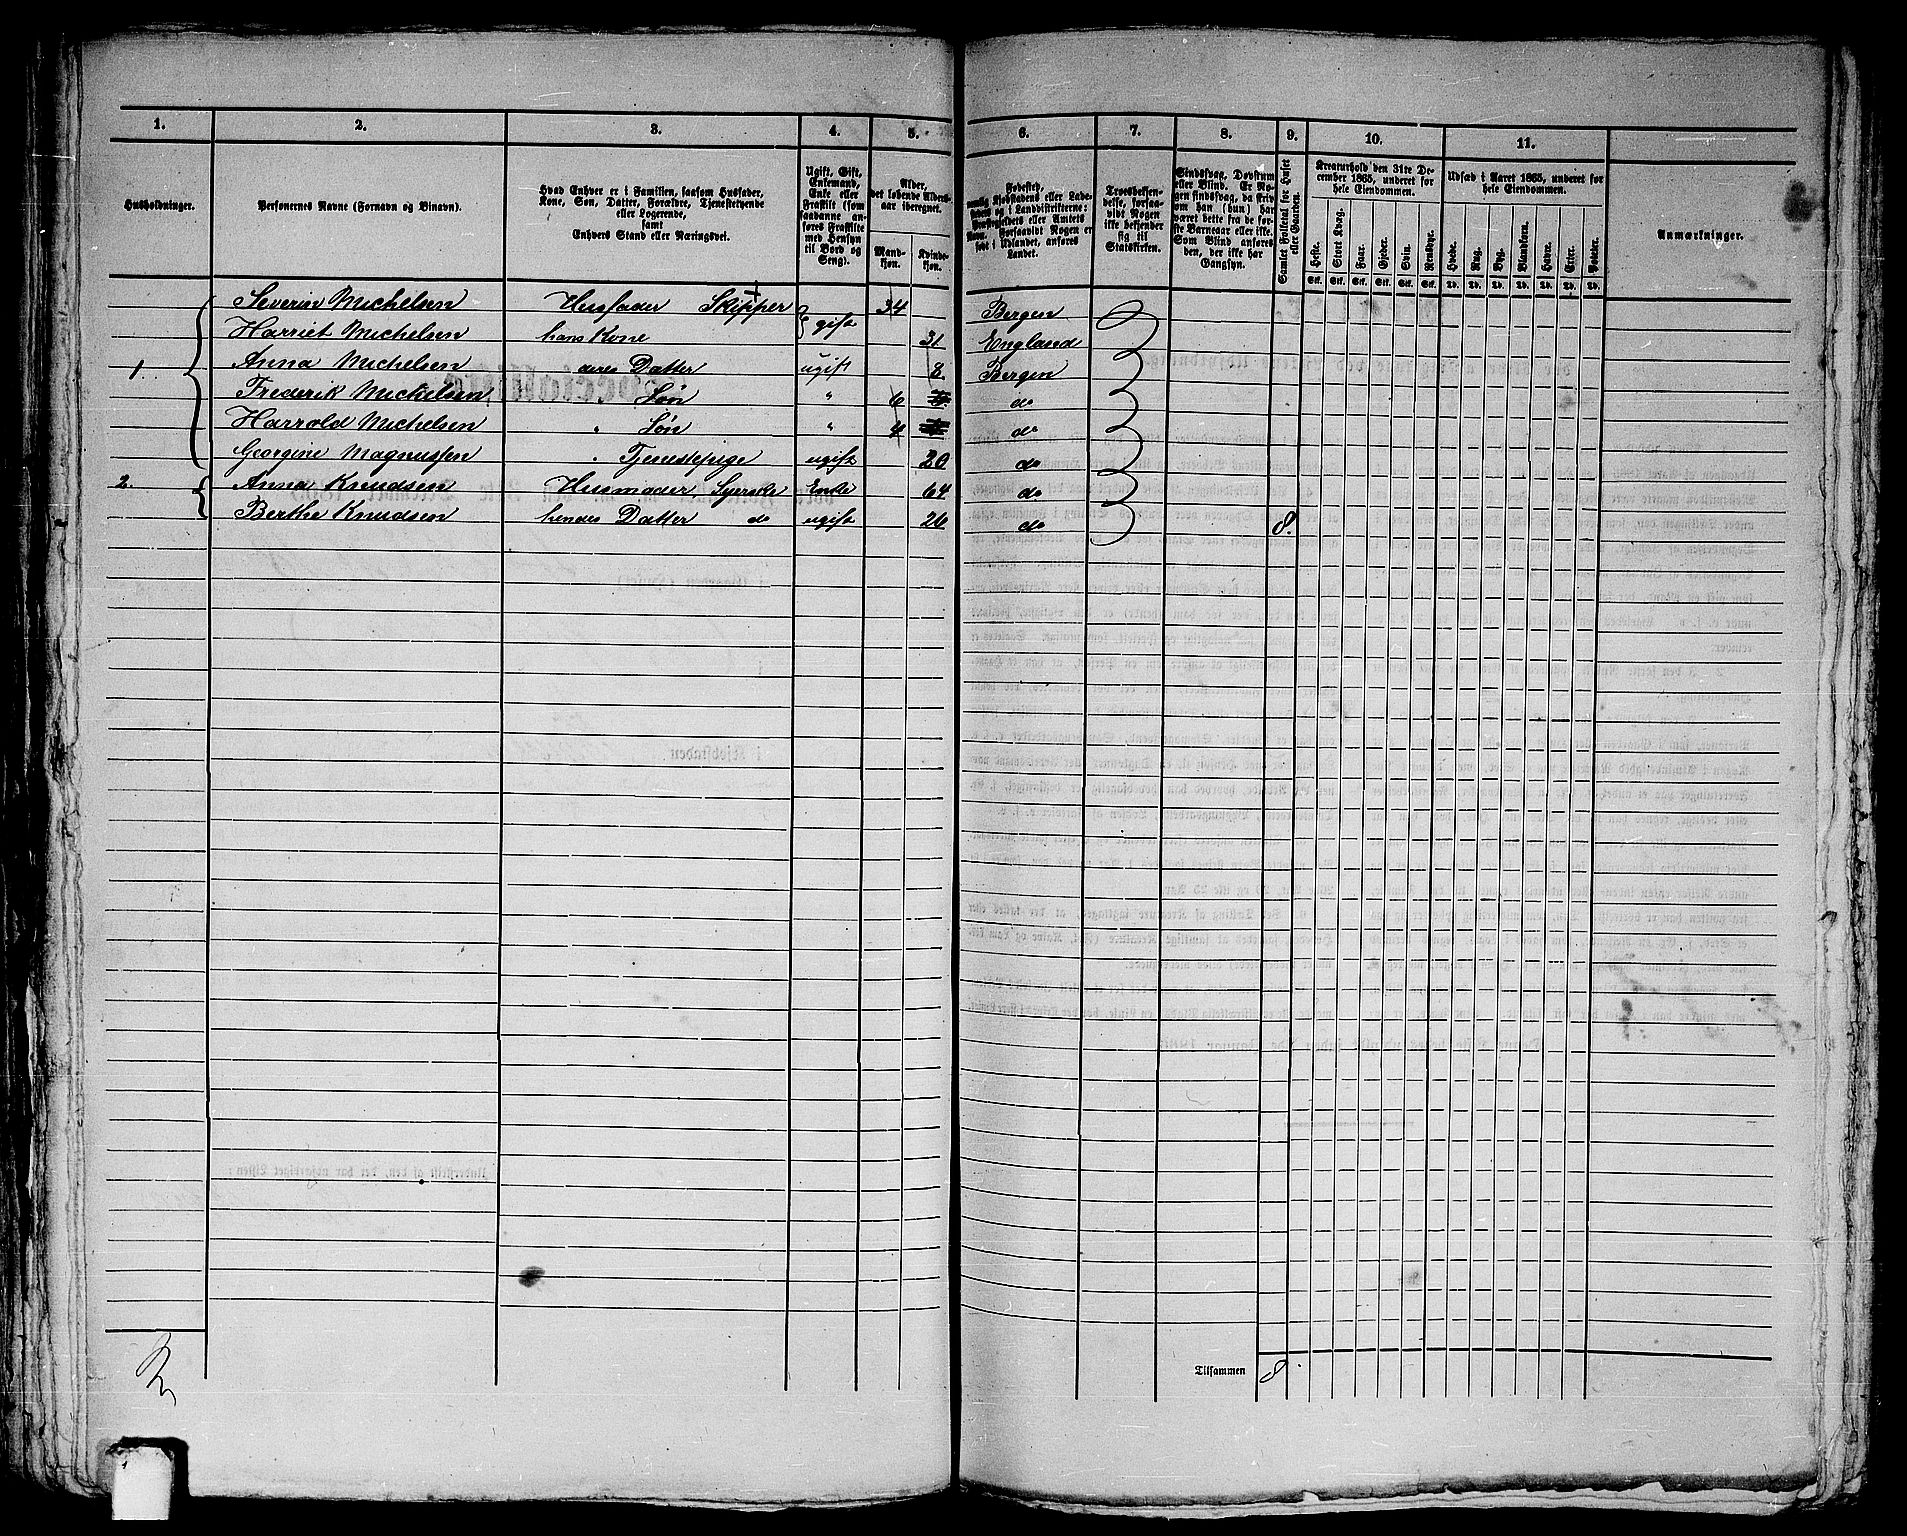 1. 2. 3. 4. 5. 6. 7. 8. 9. 10. 11.
Husholdninger.
Personernes Navne (Fornavn og Binavn).
Hvad Enhver er i Familien, saasom Husfader,
Kone, Søn, Datter, Forældre, Tjenestetyende
eller Logerende,
samt
Enhvers Stand eller Næringsvei.
Ugift, Gift,
Enkemand,
Enke eller
Fraskilte (som
saadanne an-
føres Fraskilte
med Hensyn
til Bord og
Seng).
Alder,
det løbende Alders-
aar iberegnet.
Mand-
kjøn.
Kvinde-
kjøn.
Fødested,
Kjøbstadens eller Lade-
og i Landdistrikterne:
eller Amtets
Navn. Forsaavidt Nogen er
født i Udlandet, anføres
Landet.
Troesbekjen-
delse, forsaa-
vidt Nogen
ikke bekjender
sig til
Statskirken.
Sindssvag, Døvstum
eller Blind. Er No-
gen sindssvag, da skriv
om han (hun) har
været dette fra de før-
ste Barneaar eller ikke.
Som Blind anføres
den, der ikke har
Gangsyn.
Samlet Folketal for Huset
eller Gaarden.
Kreaturhold den 31te De-
cember 1865, underet for
hele Eiendommen.
Heste. Stort Kvæg. Faar. Gjeder. Svin. Rensdyr.
Stk. Stk. Stk. Stk. Stk. Stk.
Udsæd i Aaret 1865, underet for
hele Eiendommen.
Hvede. Rug. Byg. Blandkorn. Havre. Erter. Poteter.
Td. Td. Td. Td. Td. Td. Td.
Anmærkninger.
Severin Michelsen Husfader Skipper gift 34 Bergen
Harriet Michelsen hans Kone 31 England
1 Anna Michelsen deres Datter ugift 8 Bergen
Frederik Michelsen " Søn " 6 do
Harrold Michelsen " Søn " 4 do
Georgine Magnussen " Tjenestepige ugift 20 do
2. Anna Knudsen Husmoder, Syerske Enke 64 do
Berthe Knudsen hendes Datter do ugift 26 do 8.
Tilsammen 8.